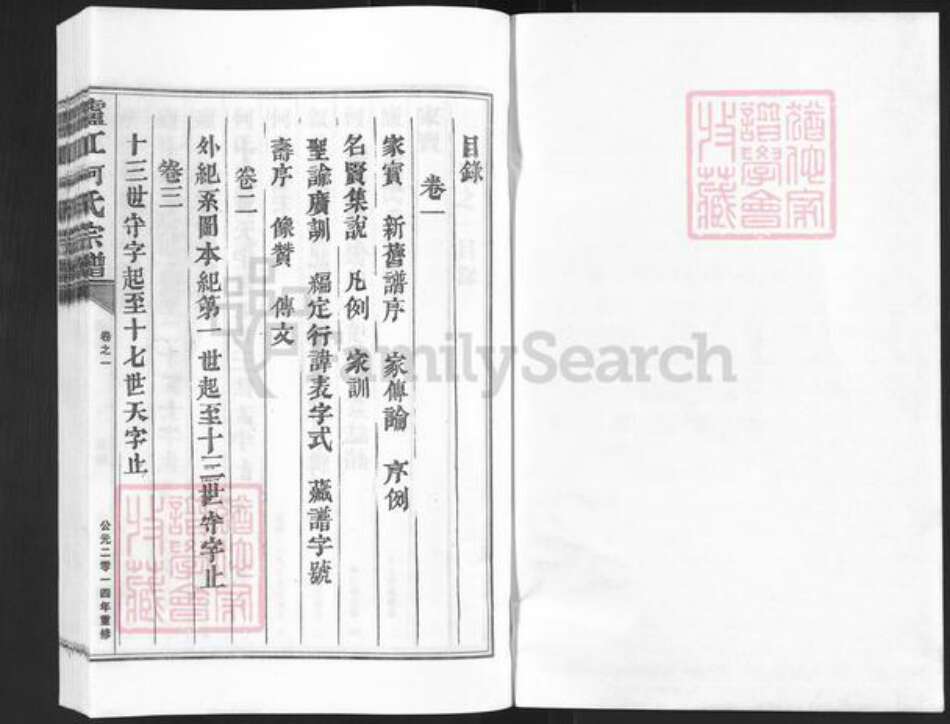 目錄
卷一
家寳 新舊譜序 家傳論 序例
名賢集說 凡例 家訓
聖諭廣訓 編定行諱表字式 藏譜字號
壽序 像贊 傳文
卷二
外紀系圖本紀第一世起至十三世守字止
卷三
十三世守字起至十七世天字止
廬江何氏宗譜
卷之一
公元二零一四年重修
FamilySearch